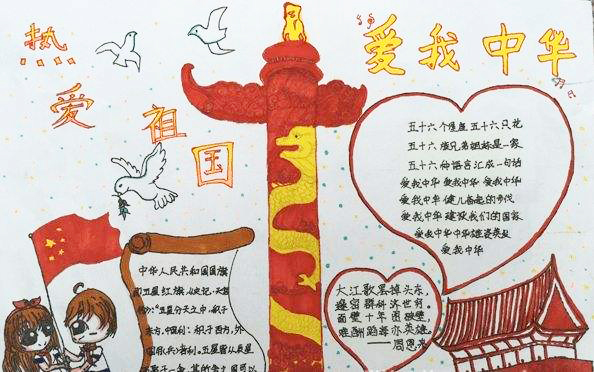 热
爱
祖
国
爱我中华
五十六个星座 五十六只花
五十六 族兄弟姐妹是一家
五十六种语言汇成一句话
爱我中华 爱我中华 爱我中华
爱我中华 健儿奋起的步伐
爱我中华 建设我们的国家
爱我中华中华雄姿英发
爱我中华
大江歌罢掉头东，
邃密群科济世穷。
面壁十年图破壁，
难酬蹈海亦英雄。
——周恩来
中华人民共和国国旗
五星红旗，史记，天官
"五星分天之中，积于
东方，中国利；积于西方，外
国 兵者利。五星皆从辰星
聚于一舍，其 国可以